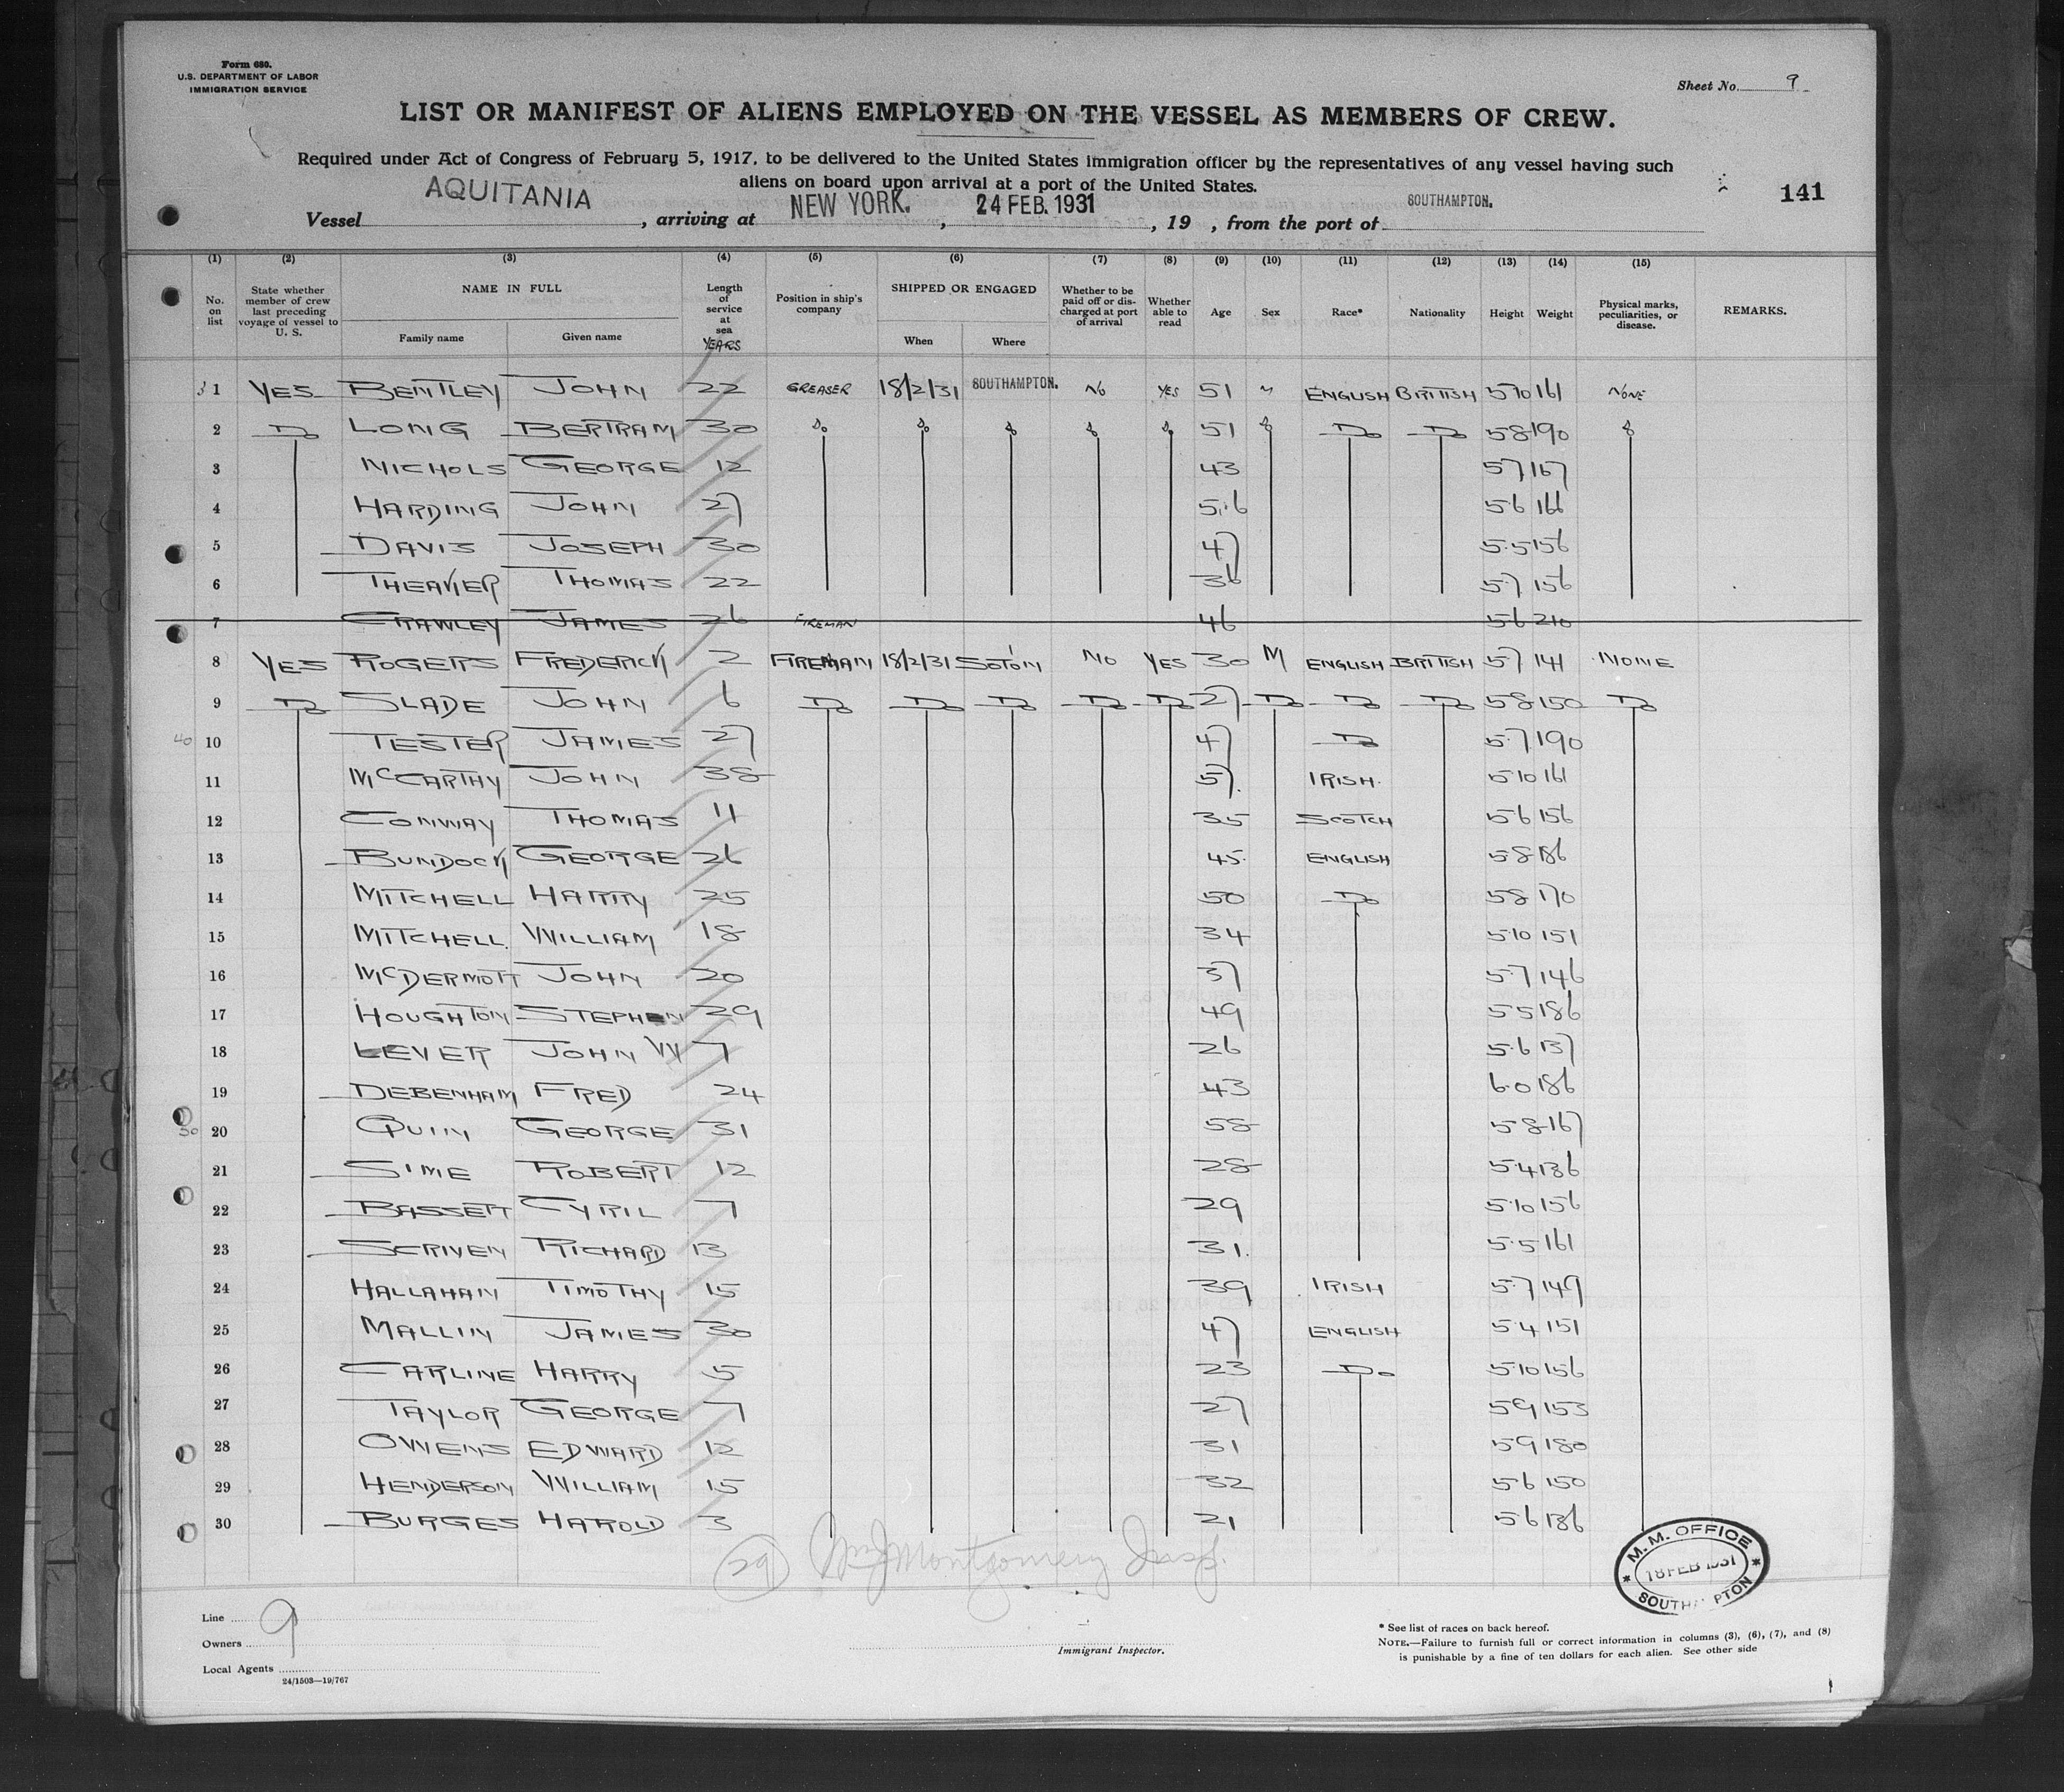 Form 680.
U.S. DEPARTMENT OF LABOR
IMMIGRATION SERVICE
Sheet No. 9
LIST OR MANIFEST OF ALIENS EMPLOYED ON THE VESSEL AS MEMBERS OF CREW.
Required under Act of Congress of February 5, 1917, to be delivered to the United States immigration officer by the representatives of any vessel having such
aliens on board upon arrival at a port of the United States.
141
Vessel AQUITANIA, arriving at NEW YORK., 24 FEB. 1931, 19 , from the port of SOUTHAMPTON.
(1) (2) (3) (4) (5) (6) (7) (8) (9) (10) (11) (12) (13) (14) (15)
No. on list State whether member of crew last preceding voyage of vessel to U. S. NAME IN FULL Family name Given name Length of service at sea YEARS Position in ship's company SHIPPED OR ENGAGED When Where Whether to be paid off or discharged at port of arrival Whether able to read Age Sex Race* Nationality Height Weight Physical marks, peculiarities, or disease. REMARKS.
1 YES BENTLEY JOHN 22 GREASER 18/2/31 SOUTHAMPTON. NO YES 51 M ENGLISH BRITISH 5 10 161 NONE
2 Do LONG BERTRAM 30 Do Do Do Do Do 51 Do Do Do 5 8 190 Do
3 NICHOLS GEORGE 12 43 5 7 167
4 HARDING JOHN 27 5.6 5.6 166
5 DAVIS JOSEPH 30 47 5.5 156
6 THEAKER THOMAS 22 36 5.7 156
7 CRAWLEY JAMES 26 FIREMAN 46 5.6 210
8 YES ROGERS FREDERICK 2 FIREMAN 18/2/31 SOTON NO YES 30 M ENGLISH BRITISH 5 7 141 NONE
9 Do SLADE JOHN 6 Do Do Do Do Do 27 Do Do Do 5 8 150 Do
40 10 TESTER JAMES 27 47 Do 5.7 190
11 McCARTHY JOHN 38 57. IRISH. 5.10 161
12 CONWAY THOMAS 11 35 SCOTCH 5.6 156
13 BUNDOCK GEORGE 26 45 ENGLISH 5 8 186
14 MITCHELL HARRY 25 50 Do 5 8 170
15 MITCHELL. WILLIAM 18 34 5.10 151
16 McDERMOTT JOHN 20 37 5.7 146
17 HOUGHTON STEPHEN 29 49 5 5 186
18 LEVER JOHN W 7 26 5.6 137
19 DEBENHAM FRED 24 43 6.0 186
50 20 QUIN GEORGE 31 58 5 8 167
21 SIME ROBERT 12 28 5.4 136
22 BASSETT CYRIL 7 29 5.10 156
23 SCRIVEN RICHARD 13 31. 5.5 161
24 HALLAHAN TIMOTHY 15 39 IRISH 5.7 149
25 MALLIN JAMES 30 47 ENGLISH 5.4 151
26 CARLINE HARRY 5 23 Do 5.10 156
27 TAYLOR GEORGE 7 27 5 9 153
28 OWENS EDWARD 12 31 5 9 180
29 HENDERSON WILLIAM 15 32 5.6 150
30 BURGES HAROLD 3 21 5 6 136
29 Montgomery Insp.
M. M. OFFICE
18 FEB 1931
SOUTHAMPTON
Line 9
Owners
Local Agents
24/1503—19/767
Immigrant Inspector.
* See list of races on back hereof.
NOTE.—Failure to furnish full or correct information in columns (3), (6), (7), and (8)
is punishable by a fine of ten dollars for each alien. See other side